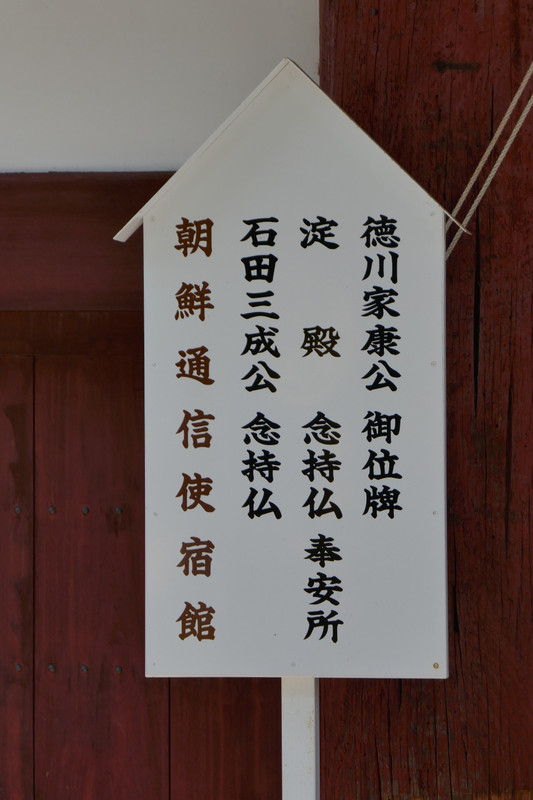 徳川家康公 御位牌
淀 殿 念持仏 奉安所
石田三成公 念持仏
朝鮮通信使宿館